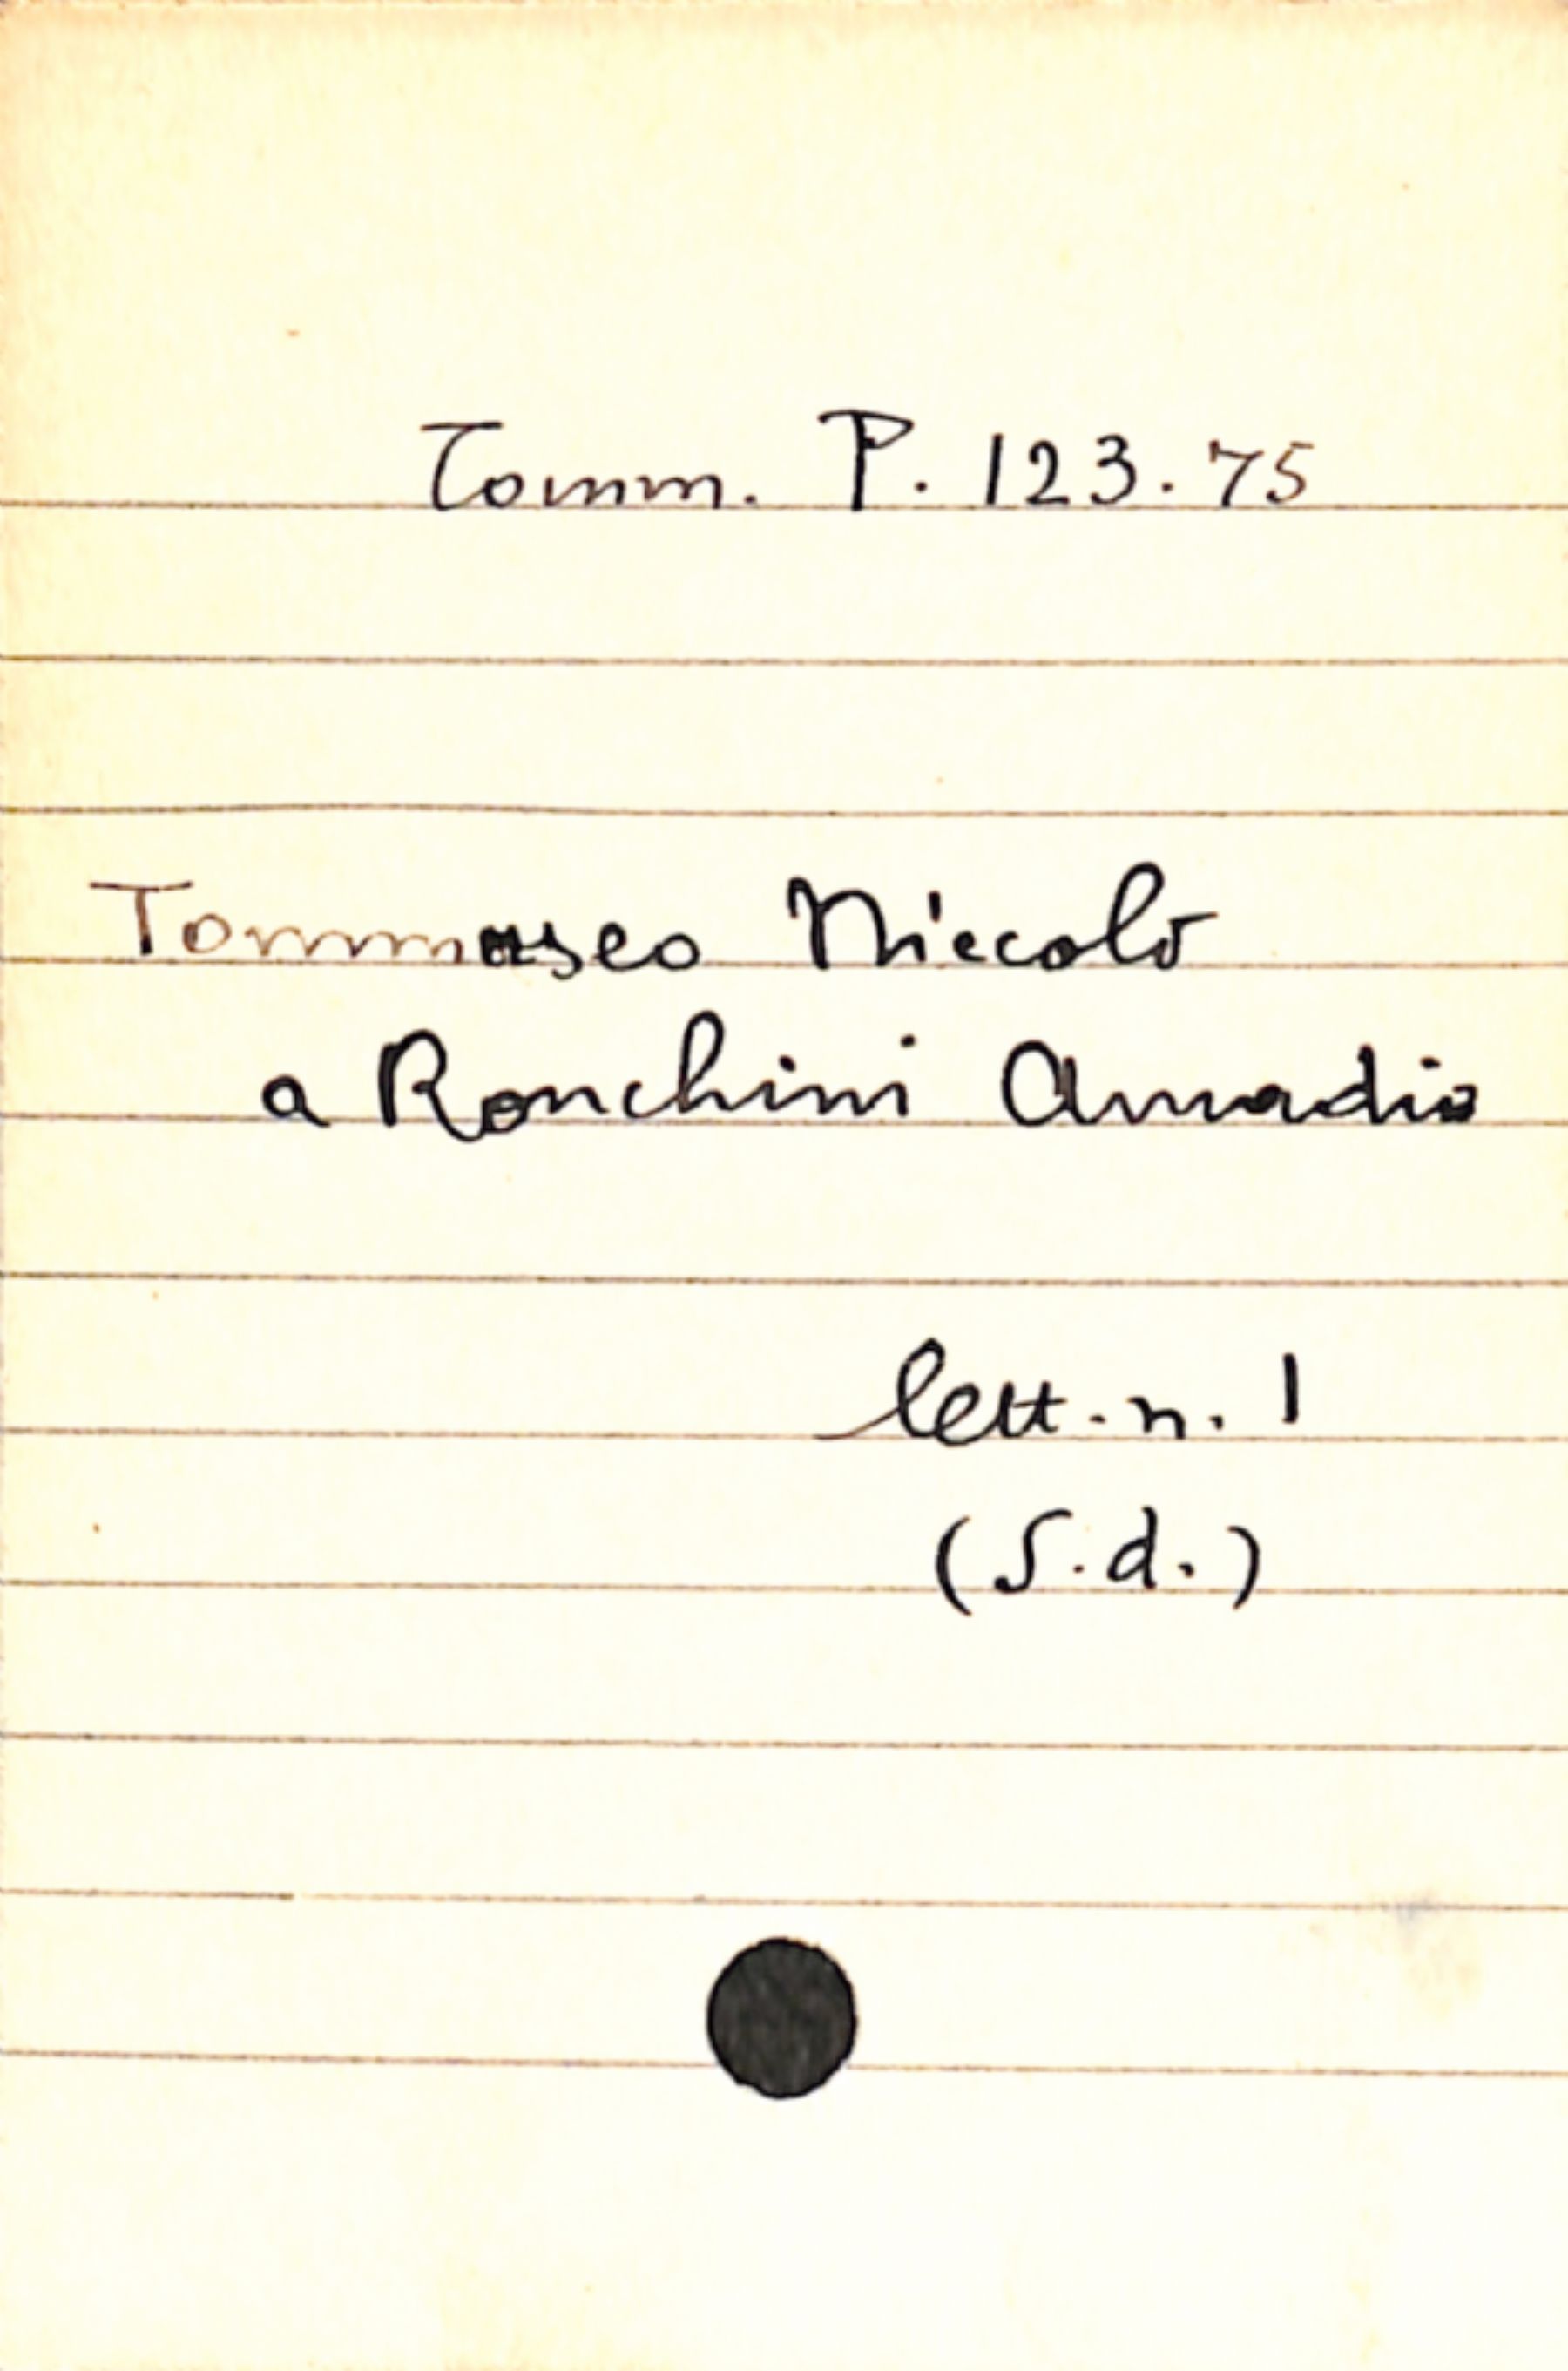 Tomm. P. 123.75
Tommaseo Niccolò
a Ronchini Amadio
lett. n. 1
(S.d.)